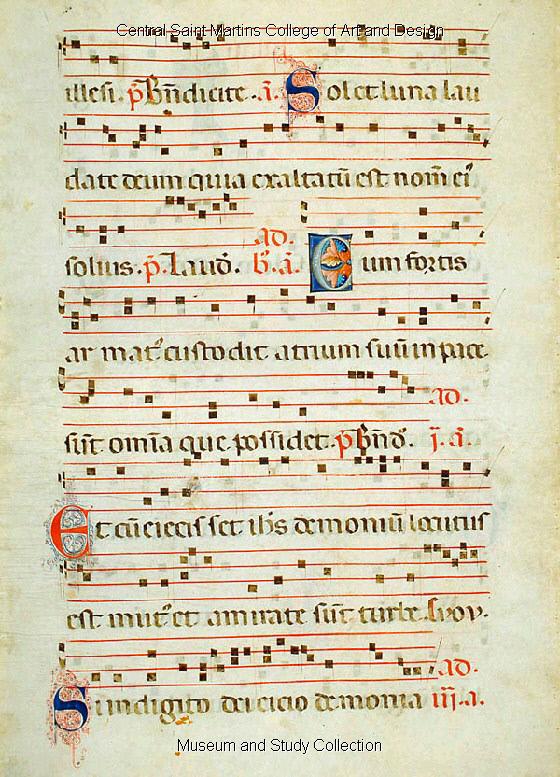 Central Saint Martins College of Art and Design
illesi. p̄. Bn̄dicite. a̅. Sol et luna lau
date deum quia exaltatū est nom̄ eiꝰ
solius. p̄. Laud̄. ad. b̄. a̅. Cum fortis
armatꝰ custodit atrium suū in pace
sūt omīa que possidet. p̄ Bn̄d̄. ad. i̅. a̅.
Et cū eiecis set ih̄s demoniū locutus
est mutꝰ et amirate sūt turbe. Evov.
Si in digito dei eicio demonia ad. iii. a.
Museum and Study Collection